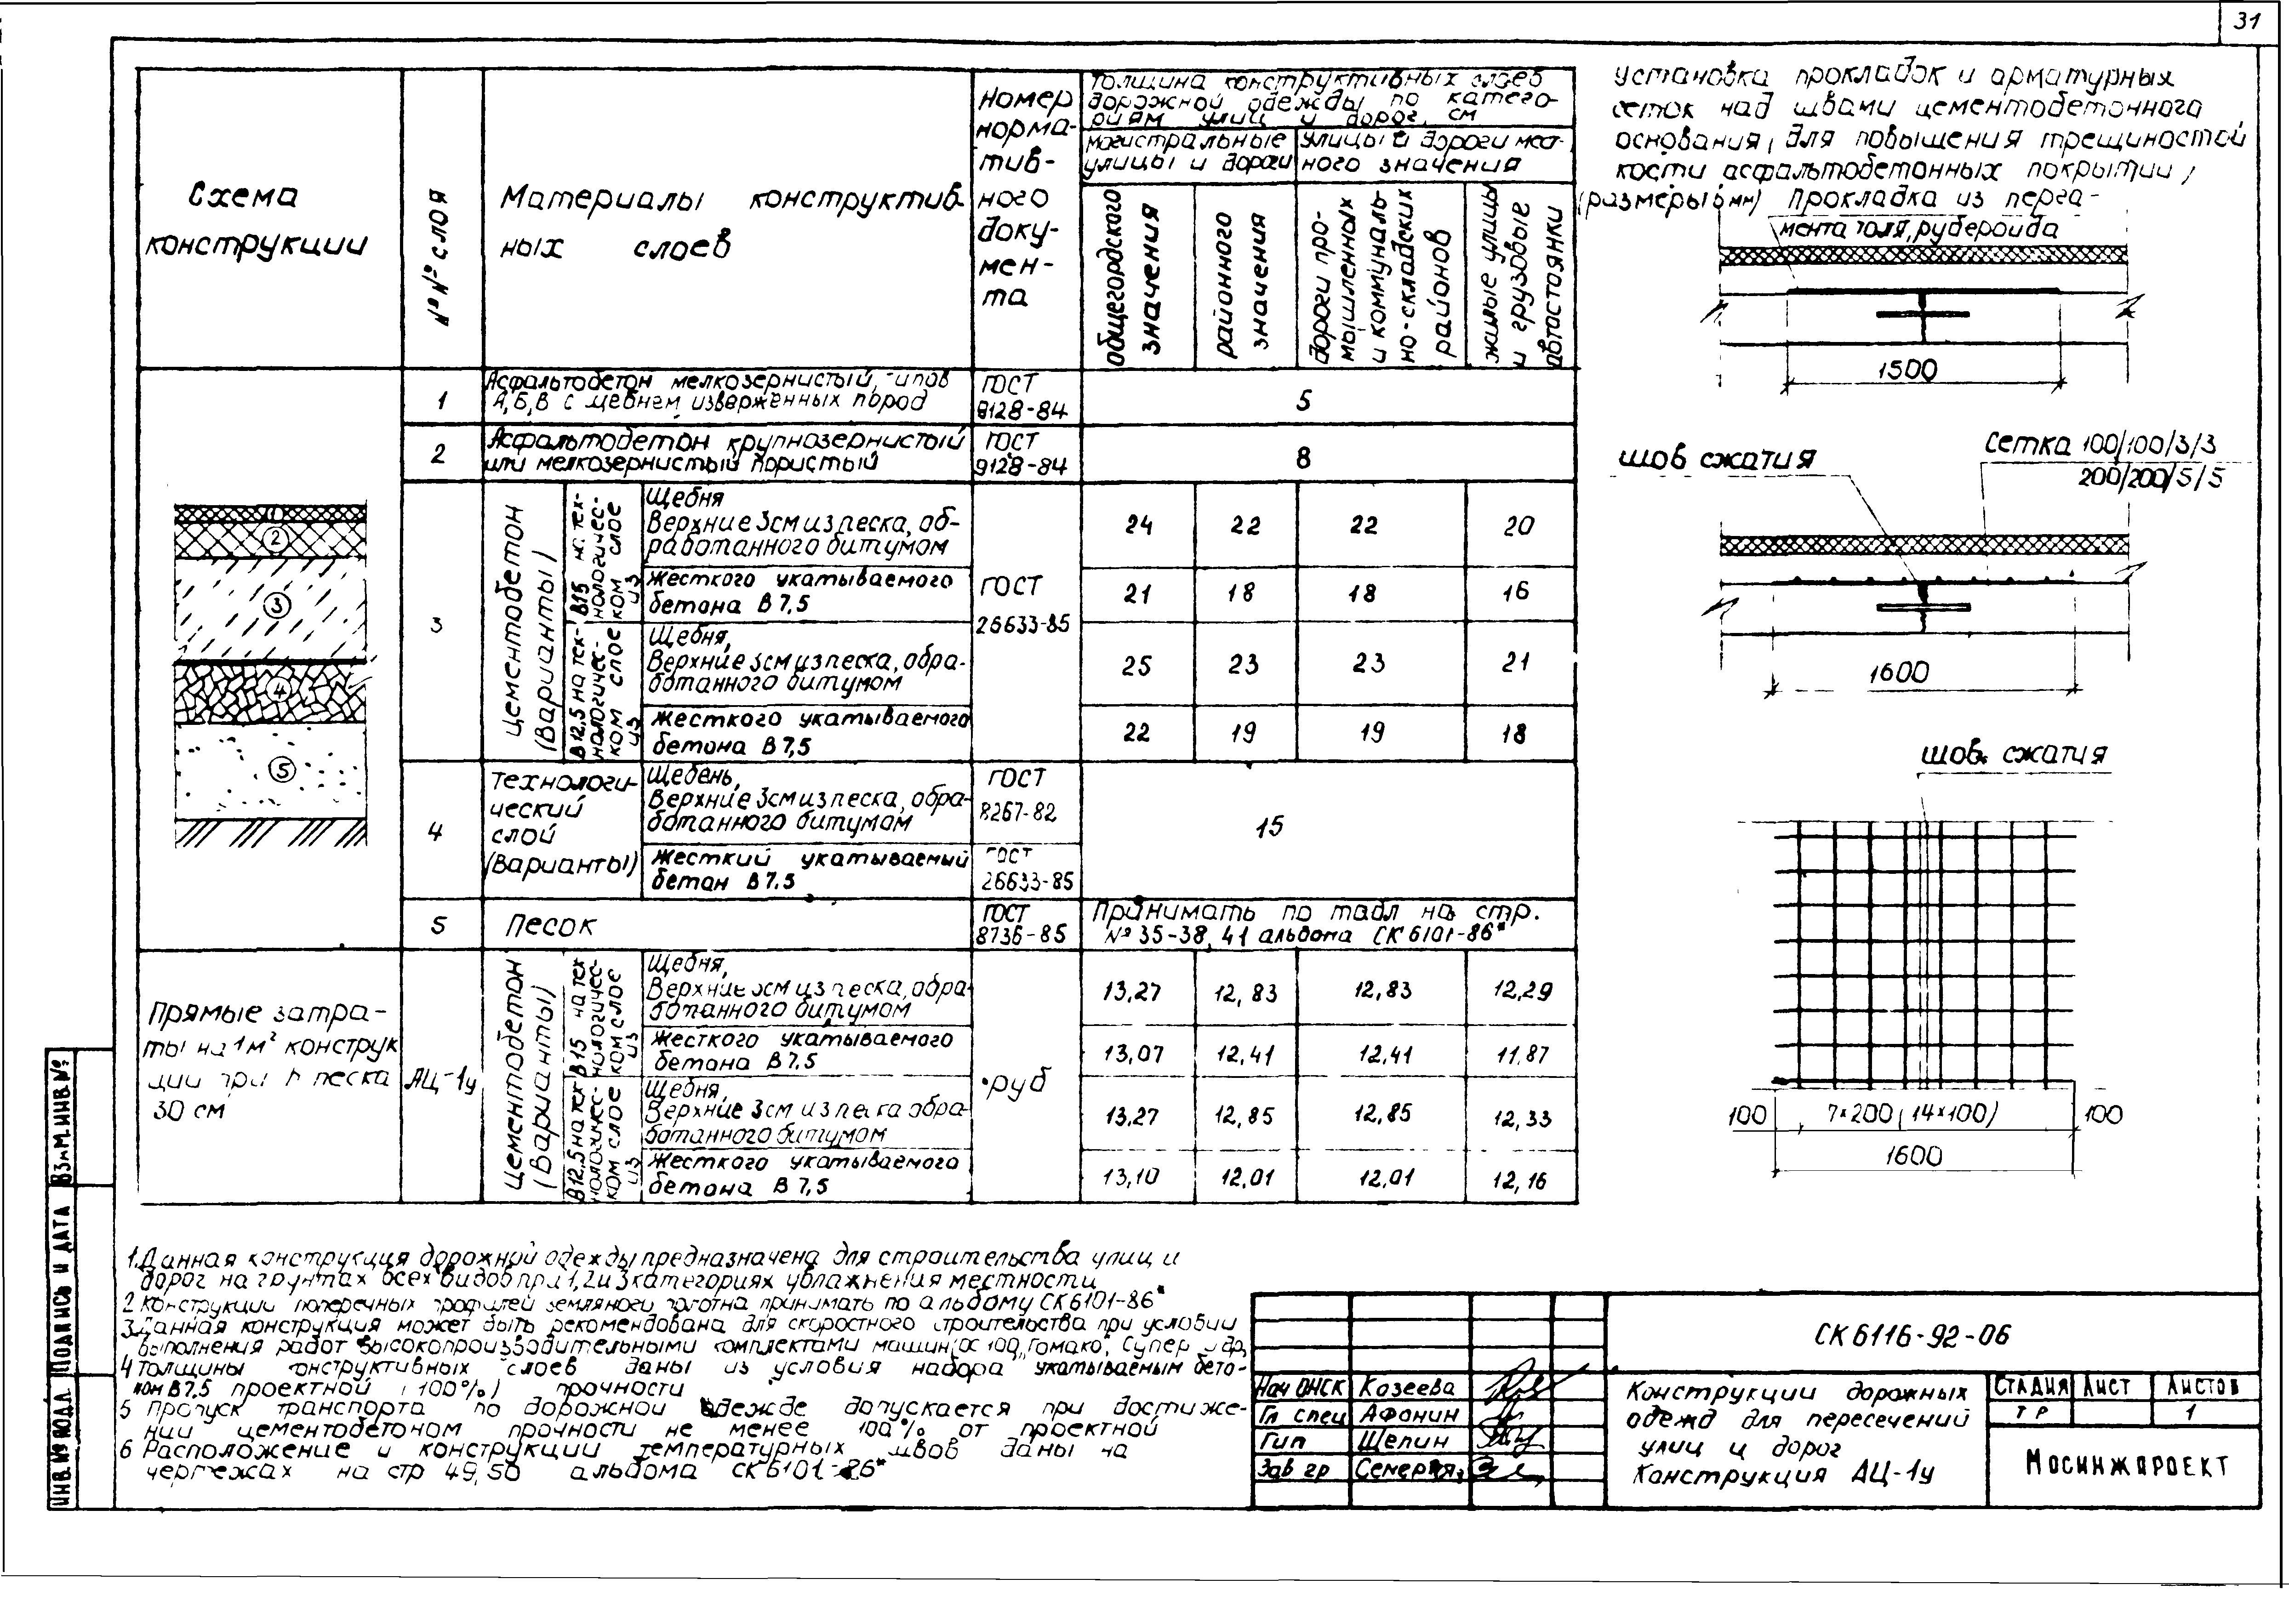 31
Схема
конструкции
№№ слоя
Материалы конструктив
ных слоев
Номер
норма-
тив-
ного
доку-
мен-
та
Толщина конструктивных слоев
дорожной одежды по катего-
риям улиц и дорог, см
магистральные
улицы и дороги
улицы и дороги мест-
ного значения
общегородского
значения
районного
значения
дороги про-
мышленных
и коммуналь-
но-складских
районов
жилые улицы
и грузовые
автостоянки
1
Асфальтобетон мелкозернистый, типов
А,Б,В с щебнем изверженных пород
ГОСТ
9128-84
5
2
Асфальтобетон крупнозернистый
или мелкозернистый пористый
ГОСТ
9128-84
8
3
Цементобетон
(Варианты)
В15 на тех-
нологичес-
ком слое
из
Щебня
Верхние 3см из песка, об-
работанного битумом
24 22 22 20
Жесткого укатываемого
бетона В 7,5
21 18 18 16
ГОСТ
26633-85
В12,5 на тех-
нологичес-
ком слое
из
Щебня,
Верхние 3см из песка, обра-
ботанного битумом
25 23 23 21
Жесткого укатываемого
бетона В 7,5
22 19 19 18
4
Технологи-
ческий
слой
(Варианты)
Щебень,
Верхние 3см из песка, обра-
ботанного битумом
ГОСТ
8267-82
15
Жесткий укатываемый
бетон В 7.5
ГОСТ
26633-85
5
Песок
ГОСТ
8736-85
Принимать по табл на стр.
№ 35-38, 41 альбома СК 6101-86*
1
2
3
4
5
Прямые затра-
ты на 1м² конструк
ции при h песка
30 см
АЦ-1у
Цементобетон
(Варианты)
В15 на тех
нологичес-
ком слое
из
Щебня,
Верхние 3см из песка, обра
ботанного битумом
13,27 12,83 12,83 12,29
Жесткого укатываемого
бетона В 7,5
13,07 12,41 12,41 11,87
руб
В12,5 на тех
нологичес-
ком слое
из
Щебня,
Верхние 3см из песка обра-
ботанного битумом
13,27 12,85 12,85 12,33
Жесткого укатываемого
бетона В 7,5
13,10 12,01 12,01 12,16
Установка прокладок и арматурных
сеток над швами цементобетонного
основания, для повышения трещиностой
кости асфальтобетонных покрытий,
(размеры в мм) Прокладка из перга-
мента толя, рубероида
1500
шов сжатия
Сетка 100/100/3/3
200/200/5/5
1600
шов сжатия
100
7×200 (14×100)
100
1600
1.Данная конструкция дорожной одежды предназначена для строительства улиц и
дорог на грунтах всех видов при 1,2 и 3 категориях увлажнения местности
2 Конструкции поперечных профилей земляного полотна принимать по альбому СК6101-86*
3.Данная конструкция может быть рекомендована для скоростного строительства при условии
выполнения работ высокопроизводительными комплектами машин ДС 100, „Гомако", Супер и др,
4 Толщины конструктивных слоев даны из условия набора укатываемым бето-
ном В 7.5 проектной (100%) прочности
5 Пропуск транспорта по дорожной одежде допускается при достиже-
нии цементобетоном прочности не менее 100% от проектной
6 Расположение и конструкции температурных швов даны на
чертежах на стр 49,50 альбома СК6101-86*
СК 6116-92-06
Нач ОНСК Козеева
Гл спец Афонин
Гип Щепин
Зав гр
Конструкции дорожных
одежд для пересечений
улиц и дорог
Конструкция АЦ-1у
Стадия Лист Листов
ТР 1
Мосинжпроект
Инв.№ подл. Подпись и дата Взм.инв.№: